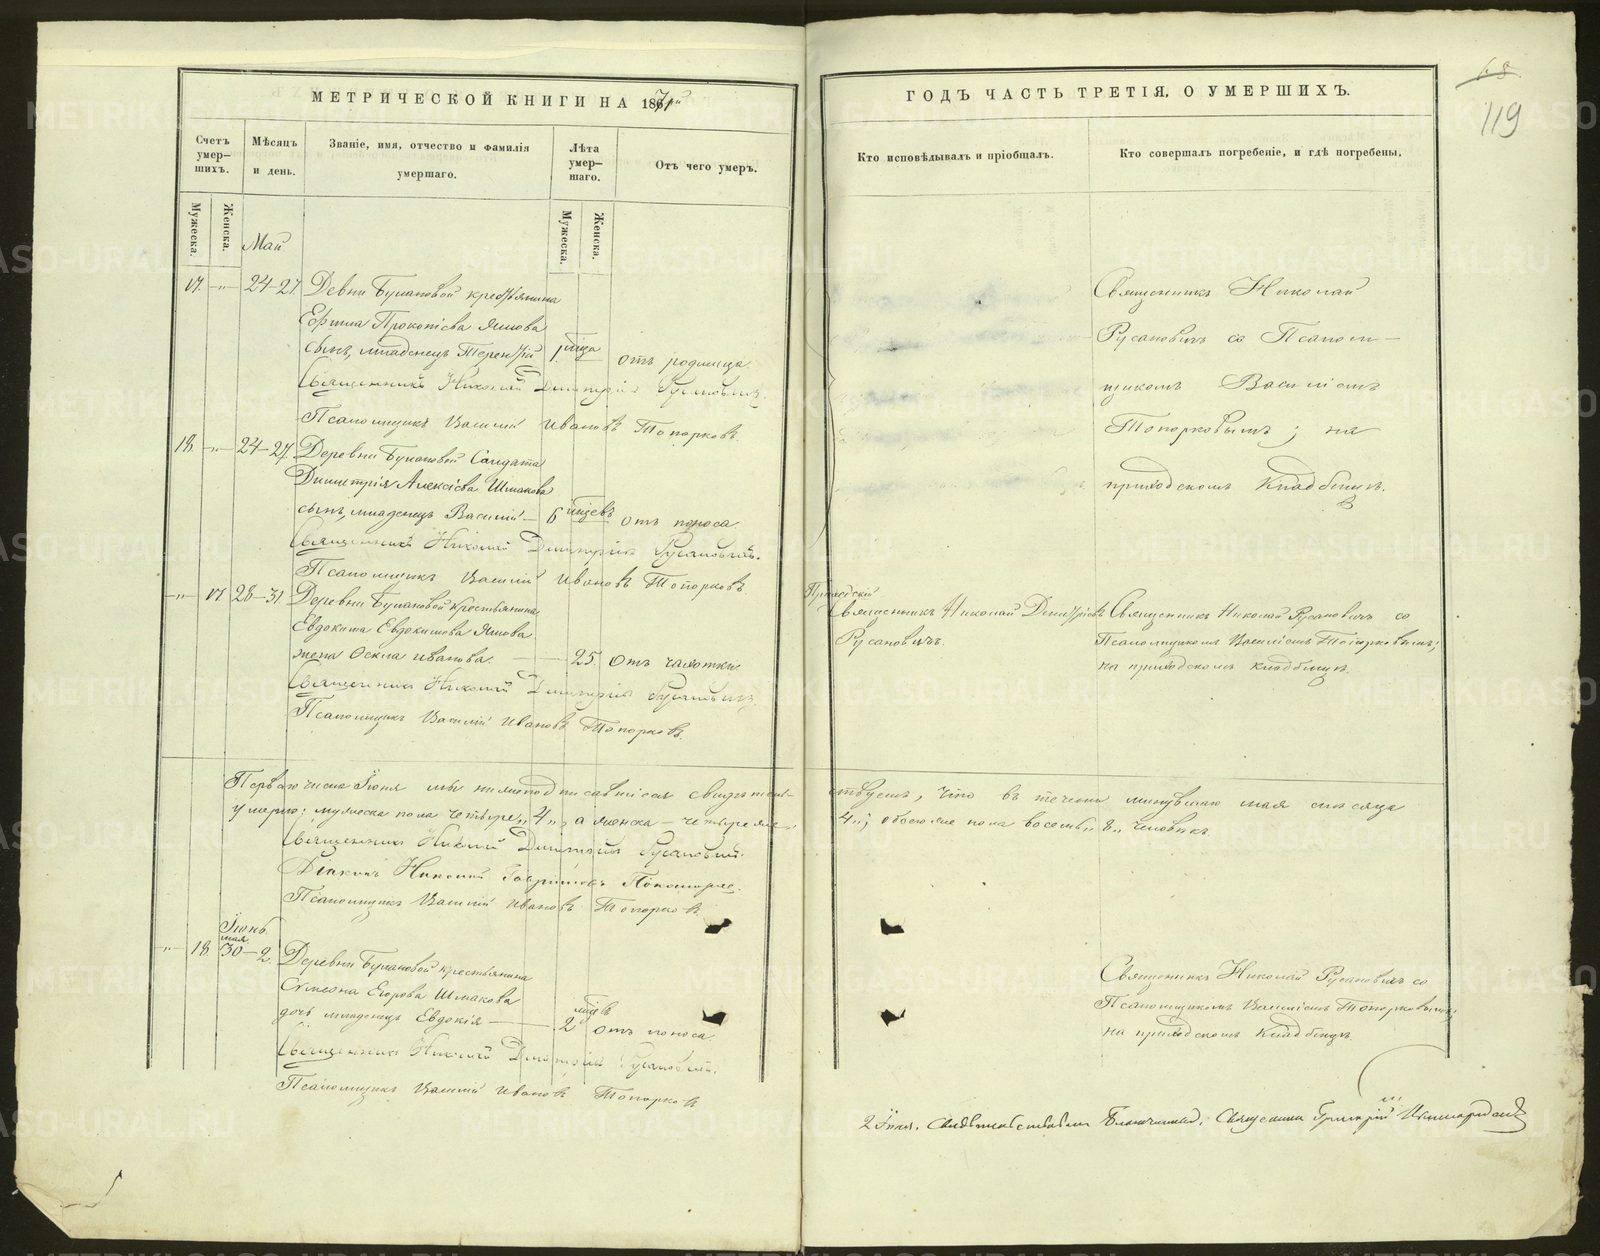 МЕТРИЧЕСКОЙ КНИГИ НА 1871й
Счетъ умер-шихъ.
Мужеска.
Женска.
Мѣсяцъ и день.
Званіе, имя, отчество и фамилія умершаго.
Лѣта умер-шаго.
Мужеска.
Женска.
Отъ чего умеръ.
Май
17. „ 24-27 Девни Булановой крестьянина
Ефима Прокопіева Ямова
сынъ, младенецъ Терентій 1 мѣца отъ родимца
Священникъ Николай Димитріевъ Русановичъ.
Псаломщикъ Василій Ивановъ Топорковъ
18. „ 24-27 Деревни Булановой Салдата
Димитрія Алексіева Шмакова
сынъ, младенецъ Василій 6 мѣцевъ отъ поноса
Священникъ Николай Димитріевъ Русановичъ.
Псаломщикъ Василій Ивановъ Топорковъ
„ 17 28-31 Деревни Булановой крестьянина
Евдокима Евдокимова Ямова
жена Фекла Иванова. 25. отъ чахотки
Священникъ Николай Димитріевъ Русановичъ
Псаломщикъ Василій Ивановъ Топорковъ.
Перваго числа Іюня мы нижеподписавшіеся свидѣтель-
умерло: мужеска пола четыре „4", а женска четыре
Священникъ Николай Димитріевъ Русановичъ.
Діаконъ Николай Гавриловъ Пономаревъ.
Псаломщикъ Василій Ивановъ Топорковъ.
Іюнь
мая
„ 18. 30-2. Деревни Булановой крестьянина
Симеона Егорова Шмакова
дочь младенецъ Евдокія 2 мѣцевъ отъ поноса
Священникъ Николай Димитріевъ Русановичъ.
Псаломщикъ Василій Ивановъ Топорковъ
68.
119
ГОДЪ ЧАСТЬ ТРЕТІЯ, О УМЕРШИХЪ.
Кто исповѣдывалъ и пріобщалъ.
Кто совершалъ погребеніе, и гдѣ погребены.
Священникъ Николай
Русановичъ со Псалом-
щикомъ Василіемъ
Топорковымъ; на
приходскомъ кладбищѣ.
Приходскій
Священникъ Николай Димитріевъ
Русановичъ.
Священникъ Николай Русановичъ со
Псаломщикомъ Василіемъ Топорковымъ;
на приходскомъ кладбищѣ.
ствуемъ, что въ теченіи минувшаго мая мѣсяца
4"; обоего пола восемь „8" человѣкъ
Священникъ Николай Русановичъ со
Псаломщикомъ Василіемъ Топорковымъ;
на приходскомъ кладбищѣ
2 Іюня. Свидѣтельствовалъ Благочинный, Священникъ Григорій